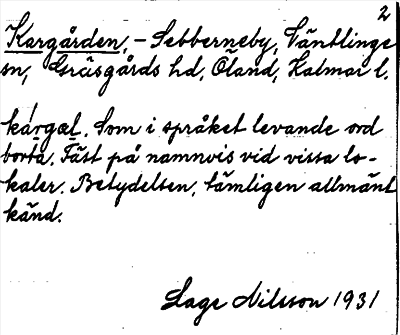 2
Kargården, - Sebberneby, Ventlinge
sn, Gräsgårds hd, Öland, Kalmar l.
kárgæl. Som i språket levande ord
borta. Fäst på namnvis vid vissa lo-
kaler. Betydelsen, tämligen allmänt
känd.
Lage Nilsson 1931